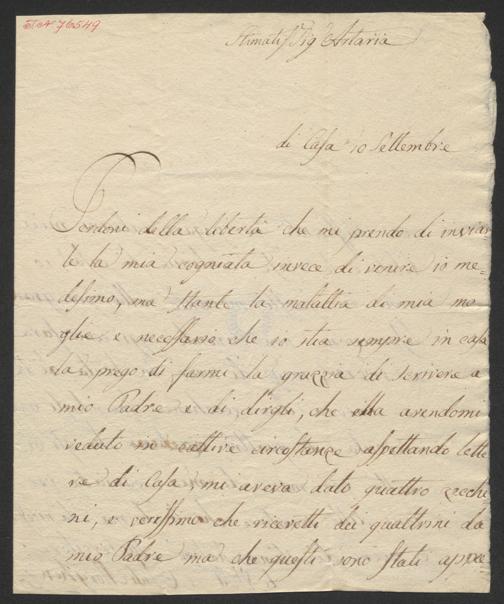 76549
Stimatis Sig Artaria
di Casa 10 Settembre
Perdoni della libertà che mi prendo di inviar
le la mia cogniata invece di venire io me-
desimo, ma stante la malattia di mia mo
glie e necessario che io stia sempre in casa
la prego di farmi la grazzia di scrivere a
mio Padre e di dirgli, che ella avendomi
veduto in cattive circostanze aspettando lette
re di Casa mi aveva dato quattro zecchi
ni, e verissimo che ricevetti dei quattrini da
mio Padre ma che questi sono stati appe